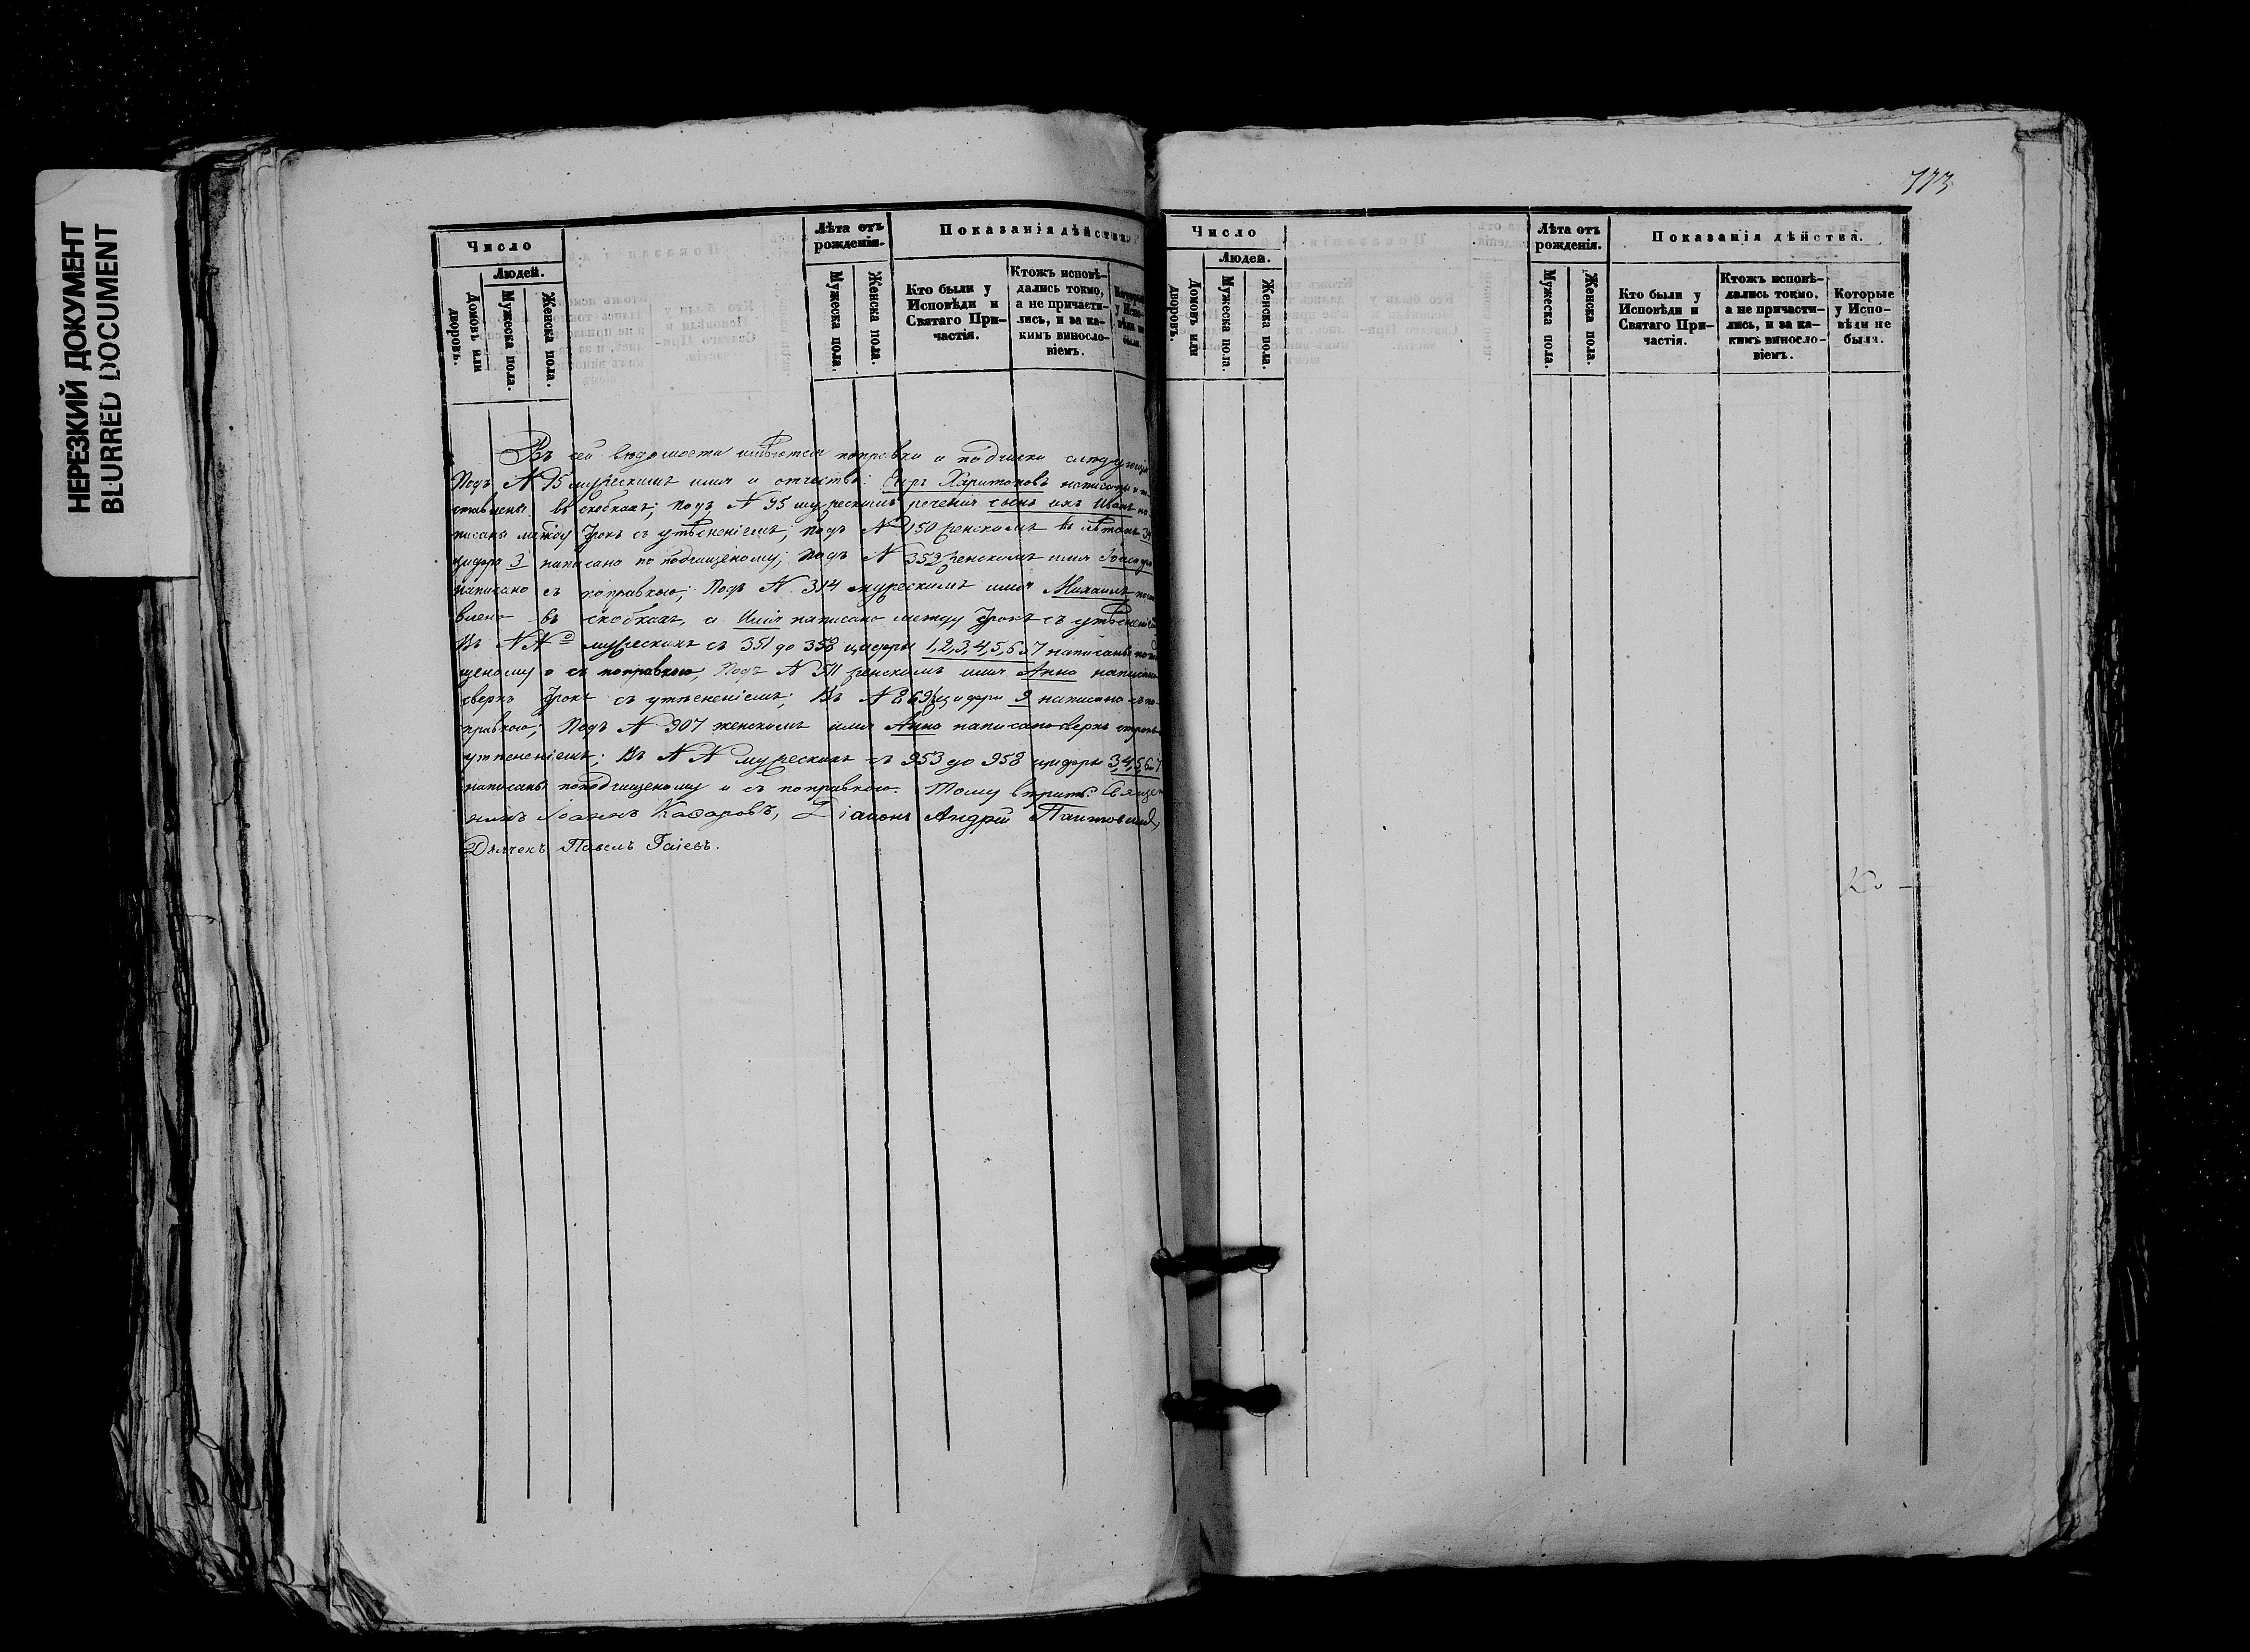 НЕРЕЗКИЙ ДОКУМЕНТ
BLURRED DOCUMENT
Число
Людей.
Домовъ или дворовъ.
Мужеска пола.
Женска пола.
Лѣта отъ рожденія.
Мужеска пола.
Женска пола.
Показанія дѣйства.
Кто были у
Исповѣди и
Святаго При-
частія.
Ктожъ исповѣ-
дались токмо,
а не причасти-
лись, и за ка-
кимъ виносло-
віемъ.
Въ сей вѣдомости имѣются поправки и подчистки слѣдующія
Подъ № 15 мужескимъ имя и отчество: Харитоновъ написаны и по-
ставлены въ скобкахъ; подъ № 95 мужескимъ реченія сынъ ихъ Иванъ на-
писаны между строкъ съ утѣсненіемъ; подъ № 150 женскимъ въ лѣтахъ 34
цифра 3 написана по подчищеному; подъ № 352 женскимъ имя
написано съ поправкою; Подъ № 314 мужескимъ имя Михаилъ поста
влено въ скобкахъ, а Илія написано между строкъ съ утѣсненіемъ
Въ №№ мужескихъ съ 351 до 358 цифры 1,2,3,4,5,6 и 7 написаны по под
щеному и съ поправкою; Подъ № 511 женскимъ имя Анна написано
сверхъ строкъ съ утѣсненіемъ; Въ № 869 цифра 9 написана съ по-
правкою; Подъ № 907 женскимъ имя Анна написано сверхъ строкъ
утѣсненіемъ; Въ №№ мужескихъ съ 953 до 958 цифры 3,4,5,6 и 7
написаны поподчищеному и съ поправкою. Тому вѣрить: Священ
никъ Іоаннъ Діаконъ Андрей
Дьячекъ Павелъ Гаіевъ.
773
Число
Людей.
Домовъ или дворовъ.
Мужеска пола.
Женска пола.
Лѣта отъ
рожденія.
Мужеска пола.
Женска пола.
Показанія дѣйства.
Кто были у
Исповѣди и
Святаго При-
частія.
Ктожъ исповѣ-
дались токмо,
а не причасти-
лись, и за ка-
кимъ виносло-
віемъ.
Которые
у Испо-
вѣди не
были.